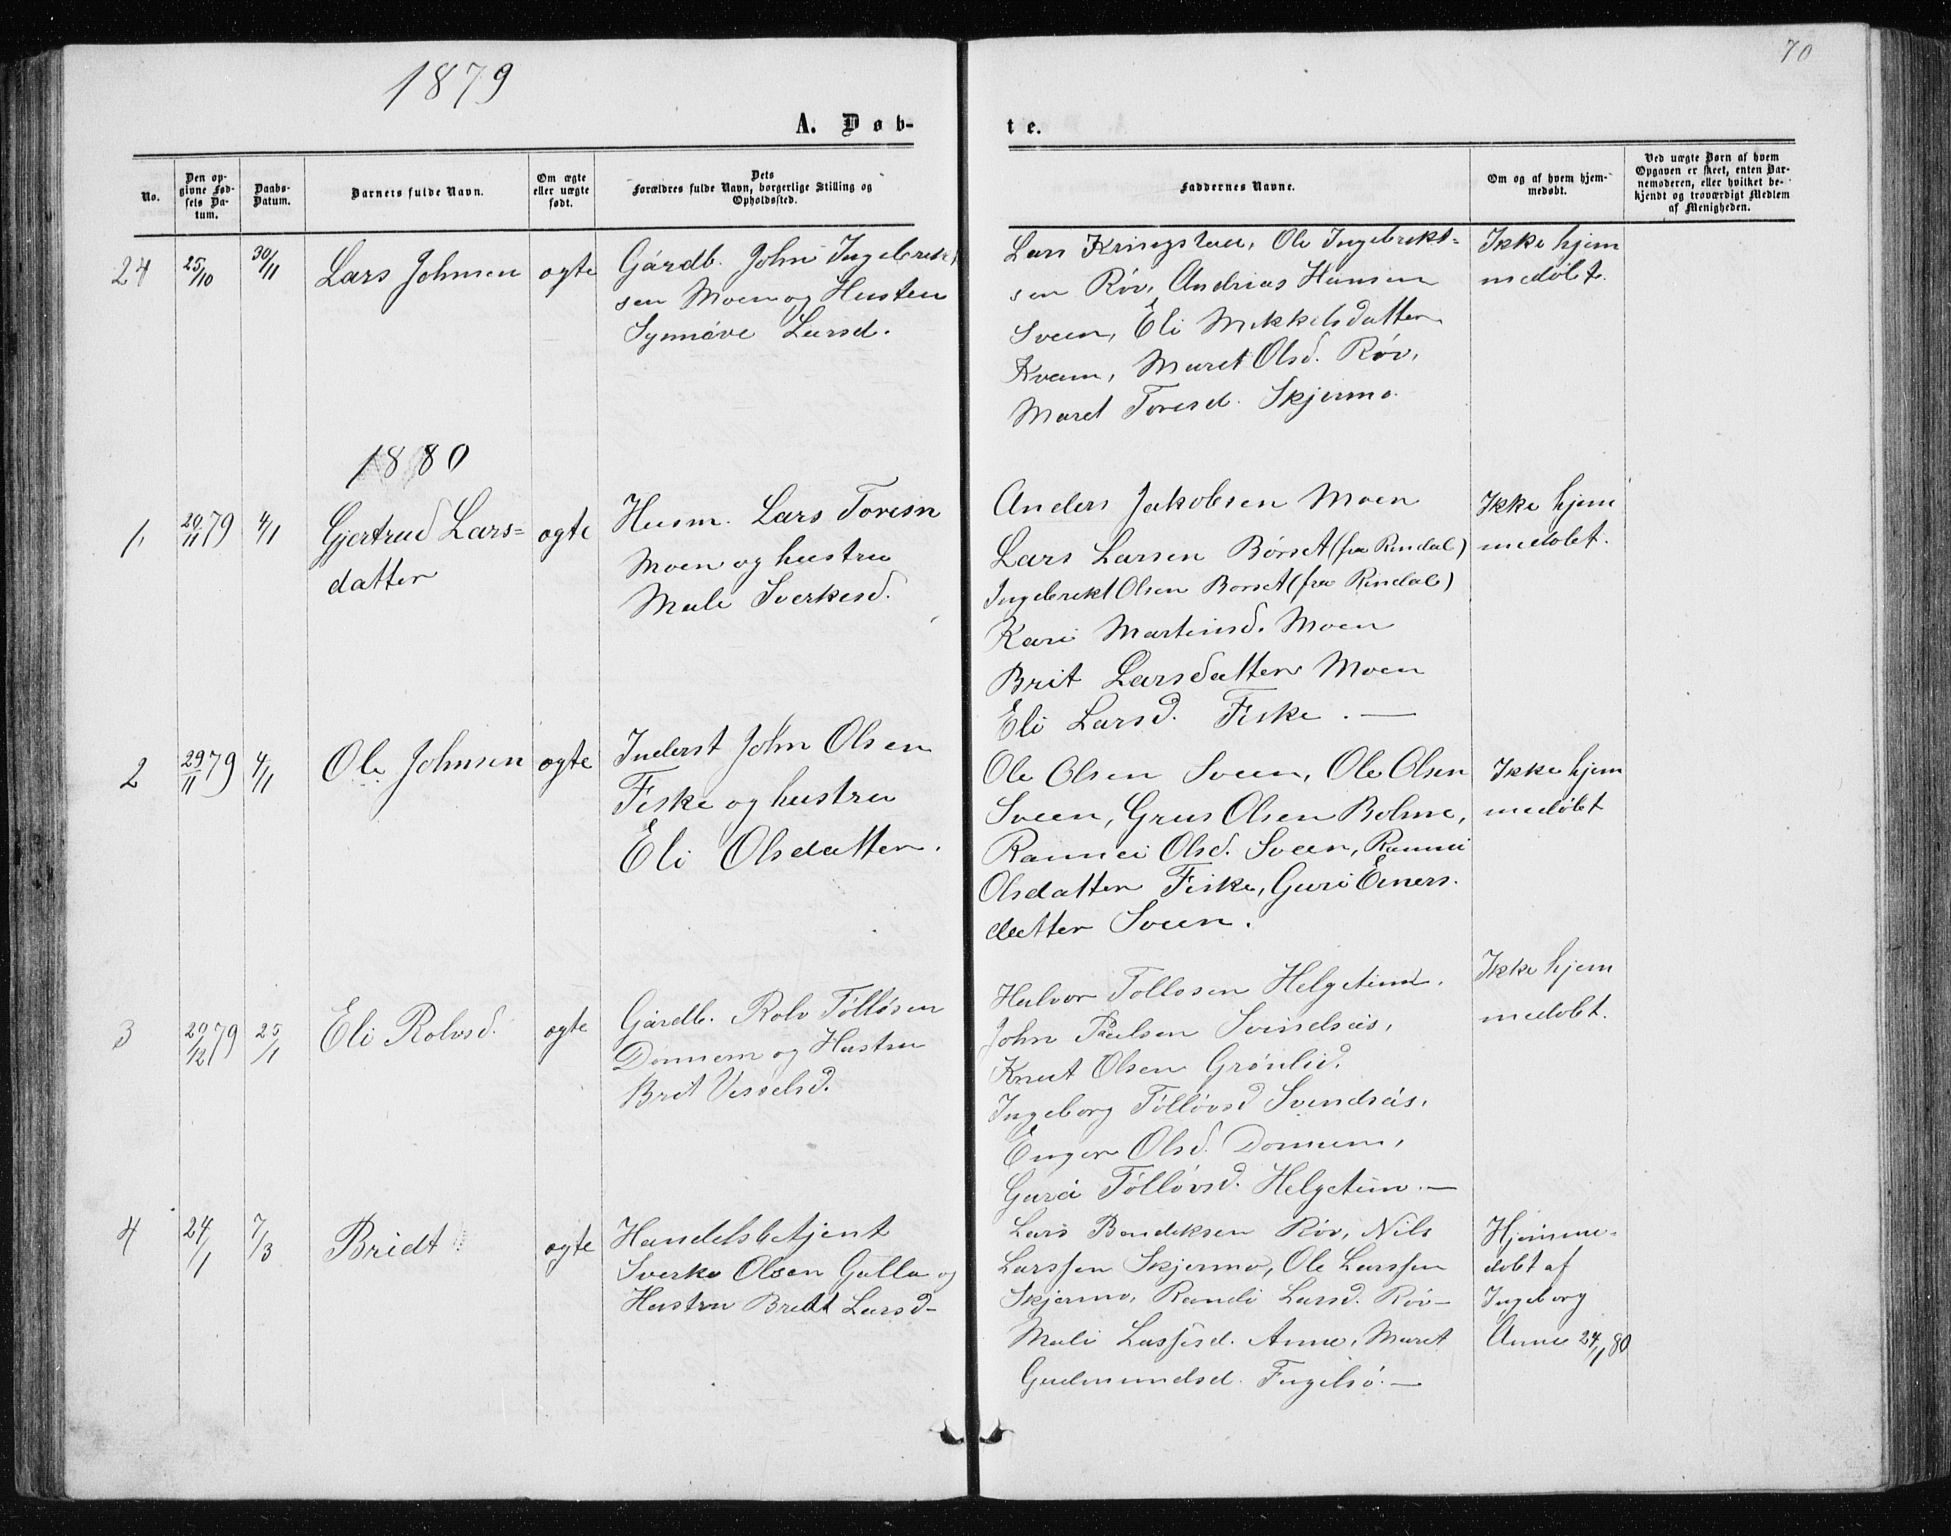 1879
70
A. Døb-
te.
No.
Den op-
givne Fød-
sels Da-
tum.
Daabs-
Datum.
Barnets fulde Navn.
Om ægte
eller uægte
født.
Dets
Forældres fulde Navn, borgerlige Stilling og
Opholdssted.
Faddernes Navne.
Om og af hvem hjem-
medøbt.
Ved uægte Børn af hvem
Opgaven er skeet, enten Bar-
nemoderen, eller hvilket be-
kjendt og troværdigt Medlem
af Menigheden.
24 25/10 30/11 Lars Johnsen ægte
Gårdb. John Ingebrikt
sen Moen og Hustru
Synnøve Larsd.
Lars Kringstad, Ole Ingebrikt=
sen Røv, Andrias Hansen
Sveen, Eli Mikkelsdatter
Kvam, Maret Olsd. Røv,
Maret Toresd. Skjermo.
Ikke hjem
medøbt.
1880
1, 20/11 79 4/1 Gjertrud Lars=
datter
ægte
Husm. Lars Toresn
Moen og hustru
Mali Sverkesd.
Anders Jakobsen Moen
Lars Larsen Børset (fra Rindal)
Ingebrikt Olsen Børset (fra Rindal)
Kari Martinsd. Moen
Brit Larsdatter Moen
Eli Larsd. Fiske. —
Ikke hjem
medøbt.
2 29/11 79 4/1 Ole Johnsen ægte
Inderst John Olsen
Fiske og hustru
Eli Olsdatter.
Ole Olsen Sveen, Ole Olsen
Sveen, Grus Olsen Bolme,
Rannei Olsd. Sveen, Rannei
Olsdatter Fiske, Guri Einers-
datter Sveen.
Ikke hjem
medøbt
3 20/12 79 25/1 Eli Rolvsd. ægte
Gårdb. Rolv Tølløsen
Dønnem og Hustru
Brit Vesselsd.
Halvor Tollosen Helgetun.
John Paulsen Svindsås,
Knut Olsen Grønlid.
Ingeborg Tølløvsd Svindsås,
Enger Olsd. Dønnem,
Guri Tølløvsd. Helgetun. —
Ikke hjem
medøbt.
4 24/1 7/3 Bridt ægte
Handelsbetjent
Sverke Olsen Galla og
Hustru Bridt Larsd-
Lars Bendiksen Røv, Nils
Larssen Skjermo, Ole Larssen
Skjermo, Randi Larsd. Røv-
Mali Lassesd. Anne, Maret
Gudmundsd. Fugelsø. —
Hjemme-
døbt af
Ingeborg
Anne 24/1 80